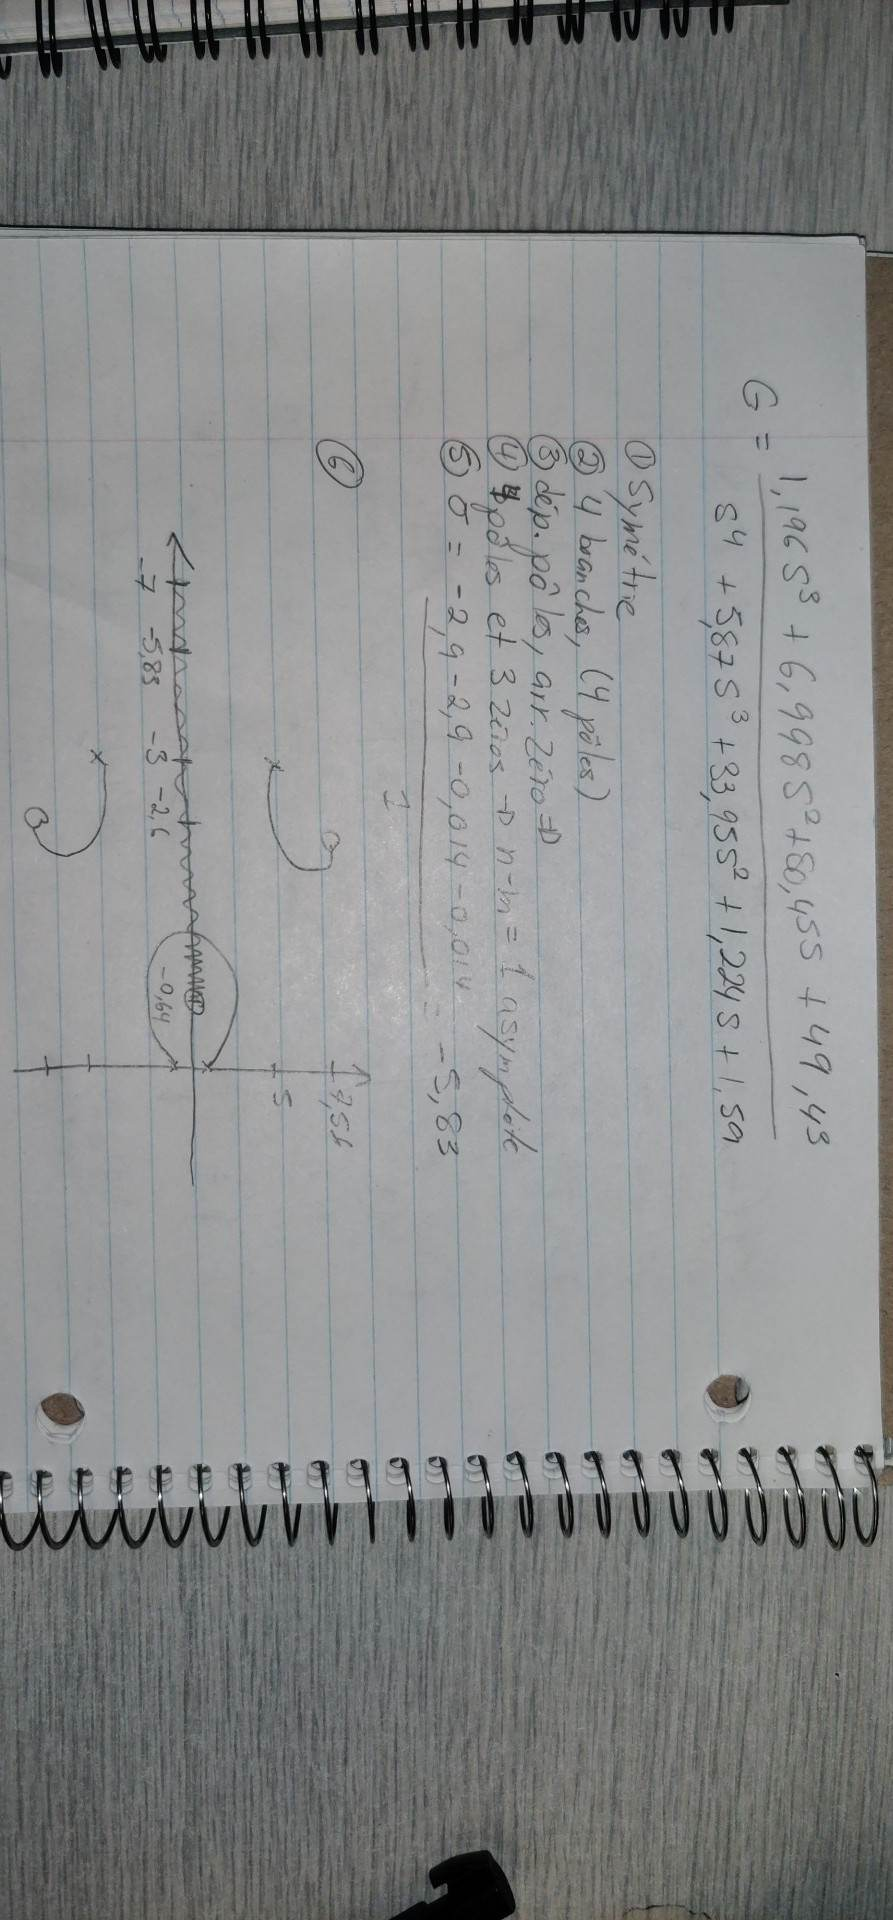 G = 1,196 S³ + 6,998 S² + 80,45 S + 49,43
S⁴ + 5,87 S³ + 33,95 S² + 1,224 S + 1,59
① Symétrie
② 4 branches, (4 pôles)
③ dép. pôles, arr. zéro ⇒
④ 4 pôles et 3 zéros → n-m = 1 asymptote
⑤ σ = -2,9 - 2,9 - 0,014 - 0,014 = -5,83
1
⑥
7,58
5
-7 -5,85 -3 -2,6 -0,64